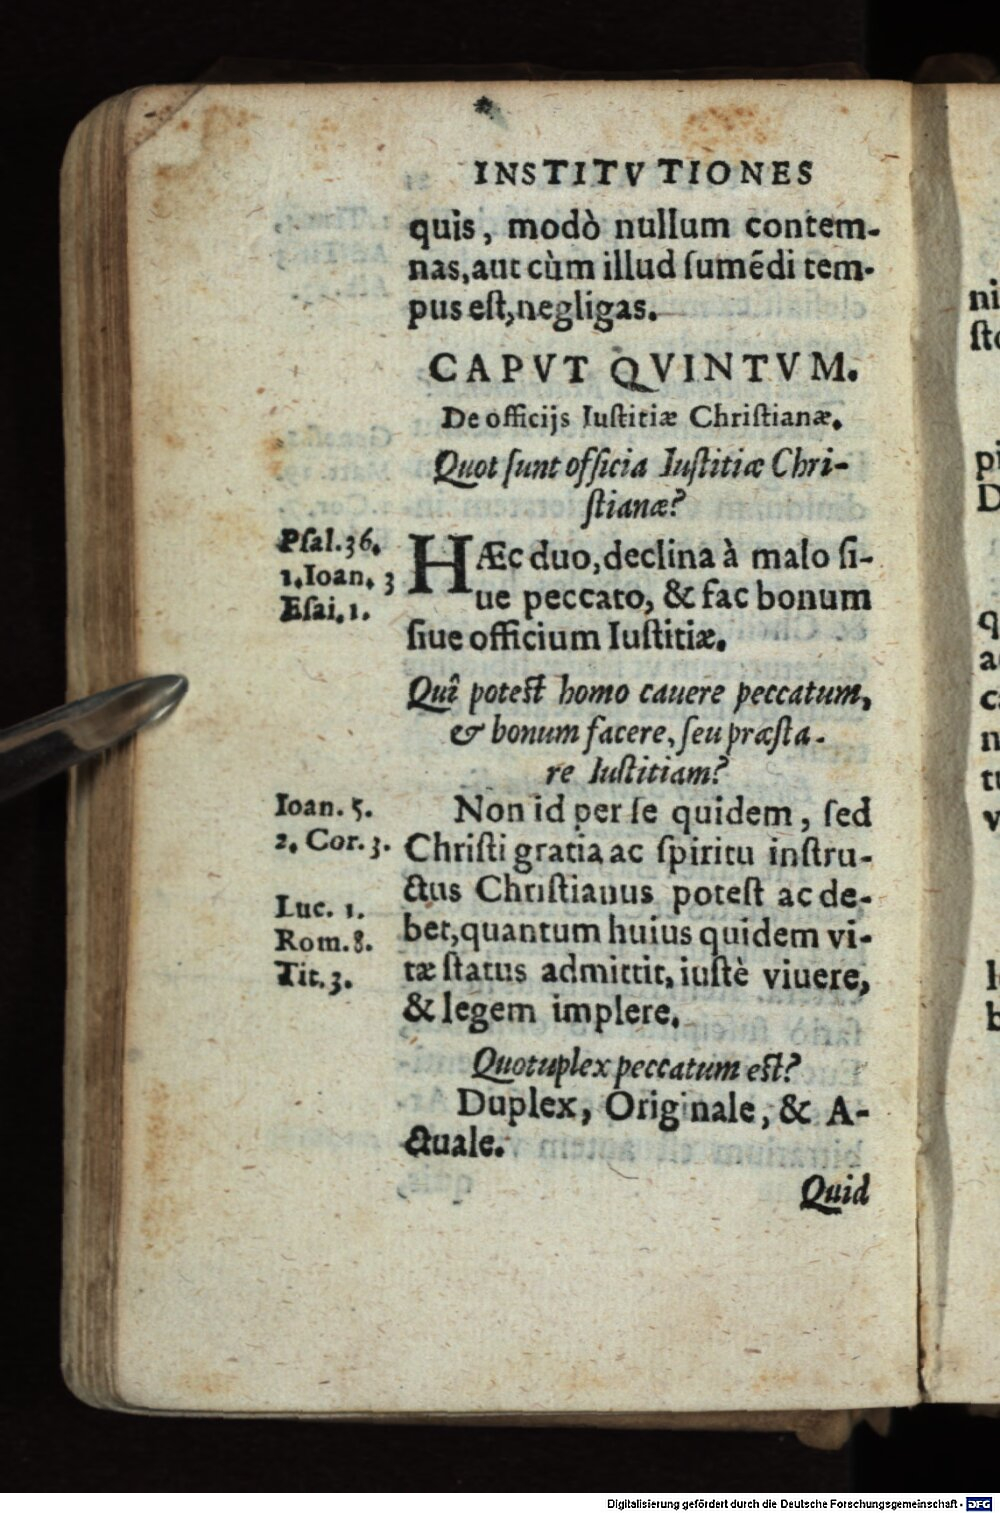 INSTITVTIONES
quis, modò nullum contem-
nas, aut cùm illud ſumēdi tem-
pus eſt, negligas.
CAPVT QVINTVM.
De officijs Iuſtitiæ Chriſtianæ.
Quot ſunt officia Iuſtitiæ Chri-
ſtianæ?
Pſal. 36.
1. Ioan. 3
Eſai. 1.
HÆc duo, declina à malo ſi-
ue peccato, & fac bonum
ſiue officium Iuſtitiæ.
Quî poteſt homo cauere peccatum,
& bonum facere, ſeu præſta-
re Iuſtitiam?
Ioan. 5.
2. Cor. 3.
Luc. 1.
Rom. 8.
Tit. 3.
Non id per ſe quidem, ſed
Chriſti gratia ac ſpiritu inſtru-
ctus Chriſtianus poteſt ac de-
bet, quantum huius quidem vi-
tæ ſtatus admittit, iuſtè viuere,
& legem implere.
Quotuplex peccatum eſt?
Duplex, Originale, & A-
ctuale.
Quid
ni
ſto
pi
D
q
a
c
n
tu
v
l
b
Digitalisierung gefördert durch die Deutsche Forschungsgemeinschaft - DFG